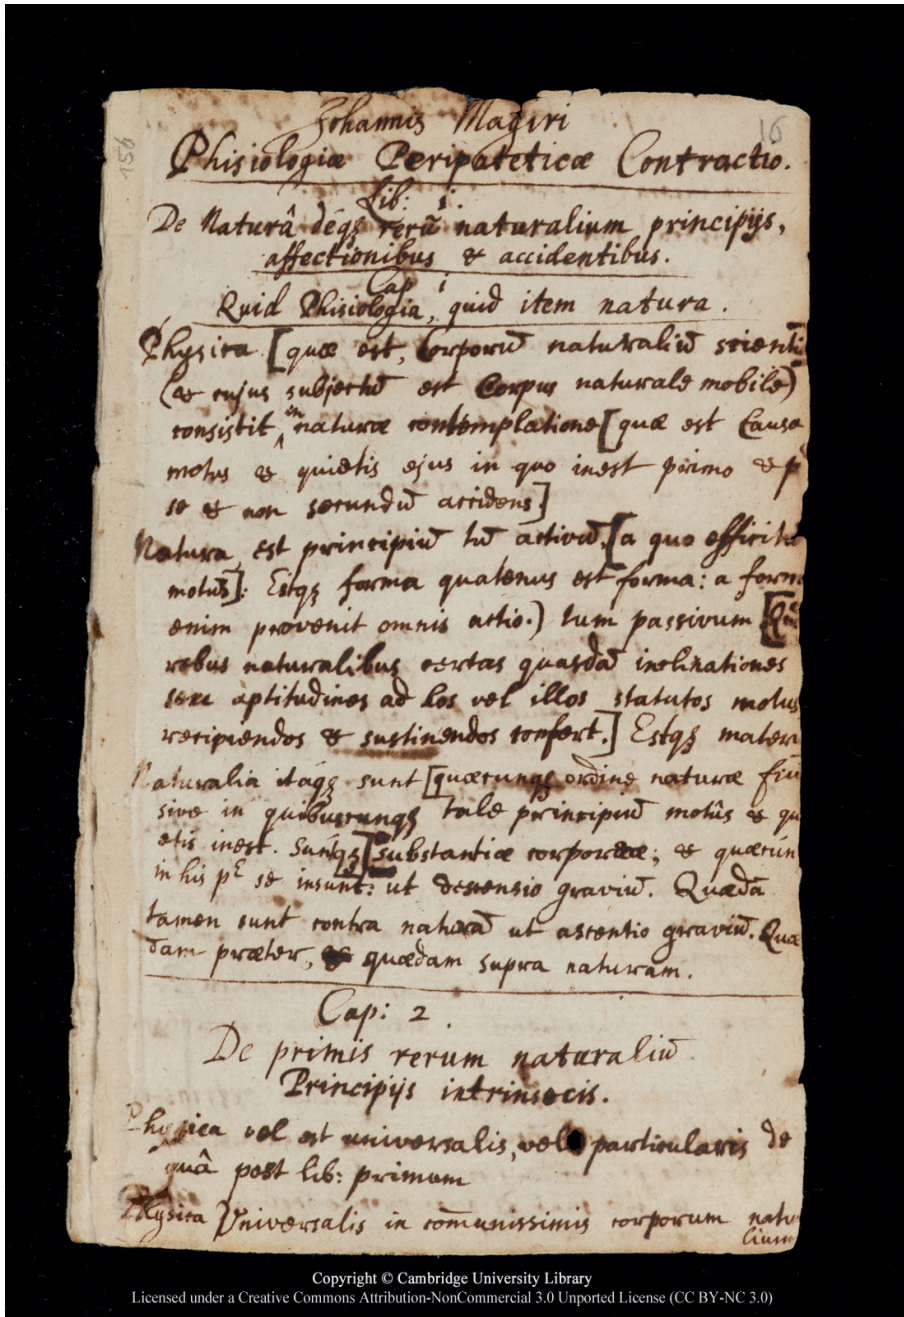 Johannis Magiri
16
156
Phisiologiæ Peripateticæ Contractio.
Lib: 1.
De Naturâ déq₃ rerū naturalium principijs,
affectionibus & accidentibus.
Cap 1
Quid Phisiologia, quid item natura.
Physica [quæ est, Corporū naturaliū scienti
(& cujus subjectū est Corpus naturale mobile)
consistit in naturæ contemplatione [quæ est Causa
motus & quietis ejus in quo inest primo & p
se & non secundū accidens]
Natura est principiū tū activū. [a quo efficitu
motus]: Estq₃ forma quatenus est forma: a form
enim provenit omnis actio.) tum passivum [Quo
rebus naturalibus certas quasdā inclinationes
seu aptitudines ad hos vel illos statutos motus
recipiendos & sustinendos confert.] Estq₃ materi
Naturalia itaq₃ sunt [quæcunq₃ ordine naturæ fiu
sive in quibuscunq₃ tale principiū motûs & qu
etis inest. Suntq₃] substantiæ corporeæ; & quæcun
in his p se insunt: ut descensio graviū. Quædā
tamen sunt contra naturā ut ascentio graviū. Quæ
dam præter, & quædam supra naturam.
Cap: 2.
De primis rerum naturaliū
Principijs intrinsecis.
Physica vel est universalis, vel particularis de
quâ post lib: primum
Physica Universalis in com̄unissimis corporum natu
lium
Copyright © Cambridge University Library
Licensed under a Creative Commons Attribution-NonCommercial 3.0 Unported License (CC BY-NC 3.0)